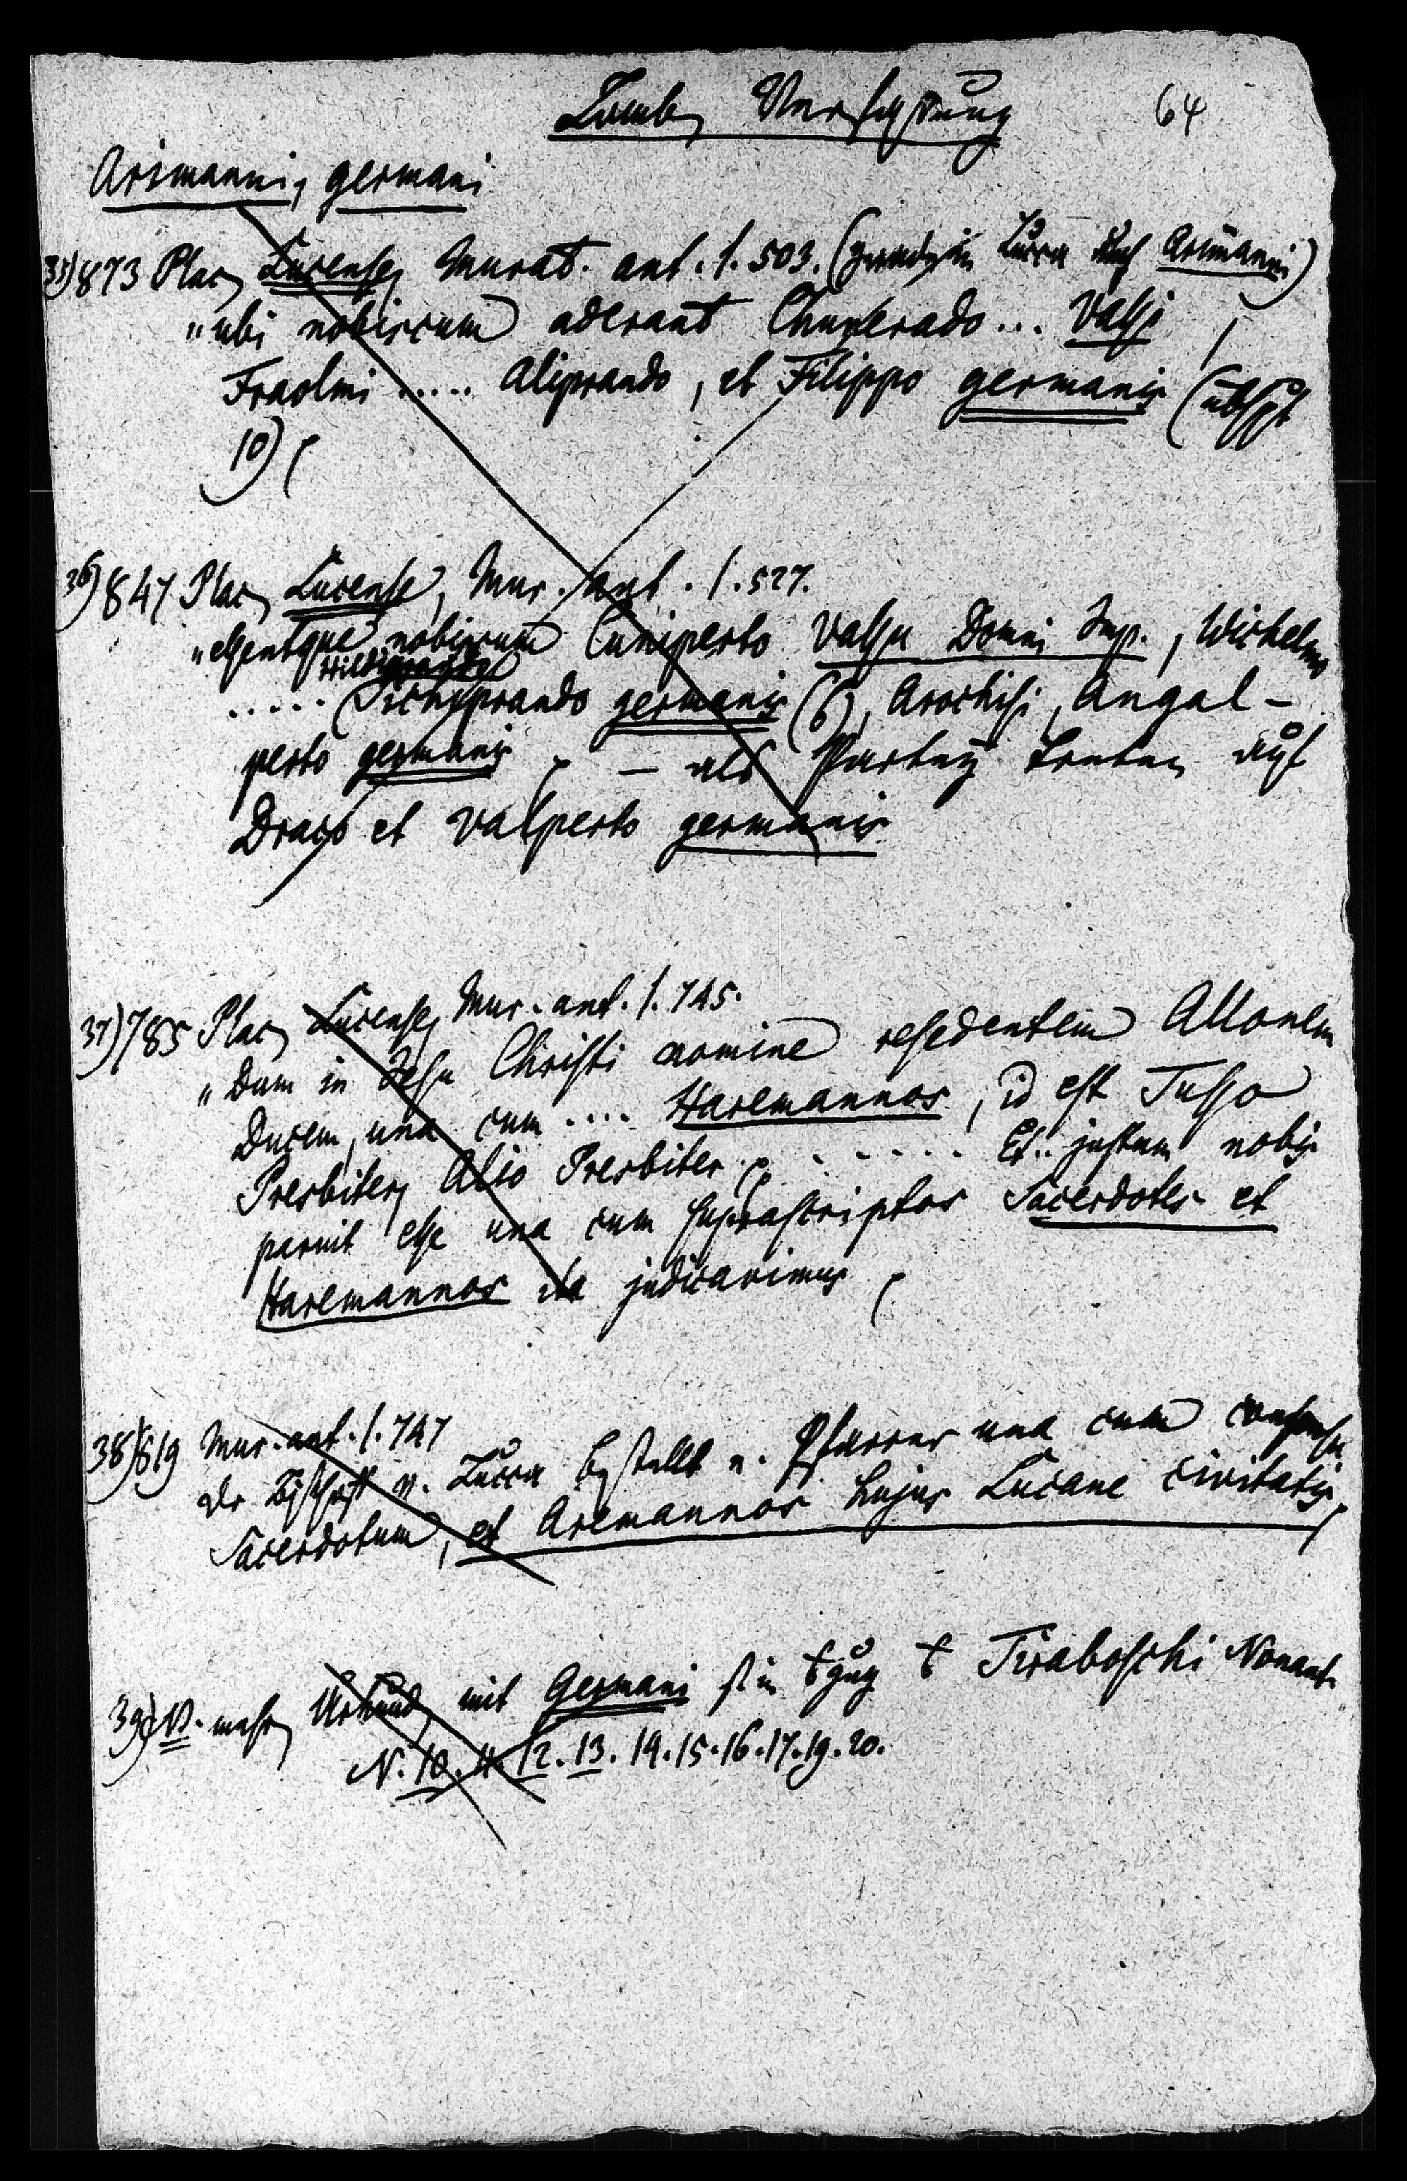 Lomb. Verfassung 64
Arimanni, germani
35) 873 Plac. Lucense, Murat. ant. 1. 503. (gerade in Lucca auch Arimanni)
"ubi nobiscum aderant Chunerado ... Vassi
Fraolmi ..... Aliprando, et Filippo germanis (
10)
36) 847 Plac. Lucense, Mur. ant. 1. 527.
"essentque nobiscum Cuniperto Vassu Domni Imp., Wichelmo
..... Sichiprando germanis (6), Arochisi, Angal-
perto germanis — als Partey treten auf
Draco et Valperto germanis
37) 785 Plac. Lucense, Mur. ant. 1. 745.
"Dum in Jesu Christi nomine resedentem Allonem
Ducem, una cum .... Haremannos, id est Tusso
Presbiter, Alio Presbiter ...... Et .. justum nobis
paruit esse una cum suprascriptos Sacerdotes et
Haremannos ita judicavimus
38) 819 Mur. ant. 1. 747
Der Bischoff v. Lucca bestellt e. Pfarrer una cum consensu
Sacerdotum, et Aremannos hujus Lucane civitatis,
39) NB. mehr Urkund. mit Germani Tiraboschi Nonant.
N. 10. 11. 12. 13. 14. 15. 16. 17. 19. 20.